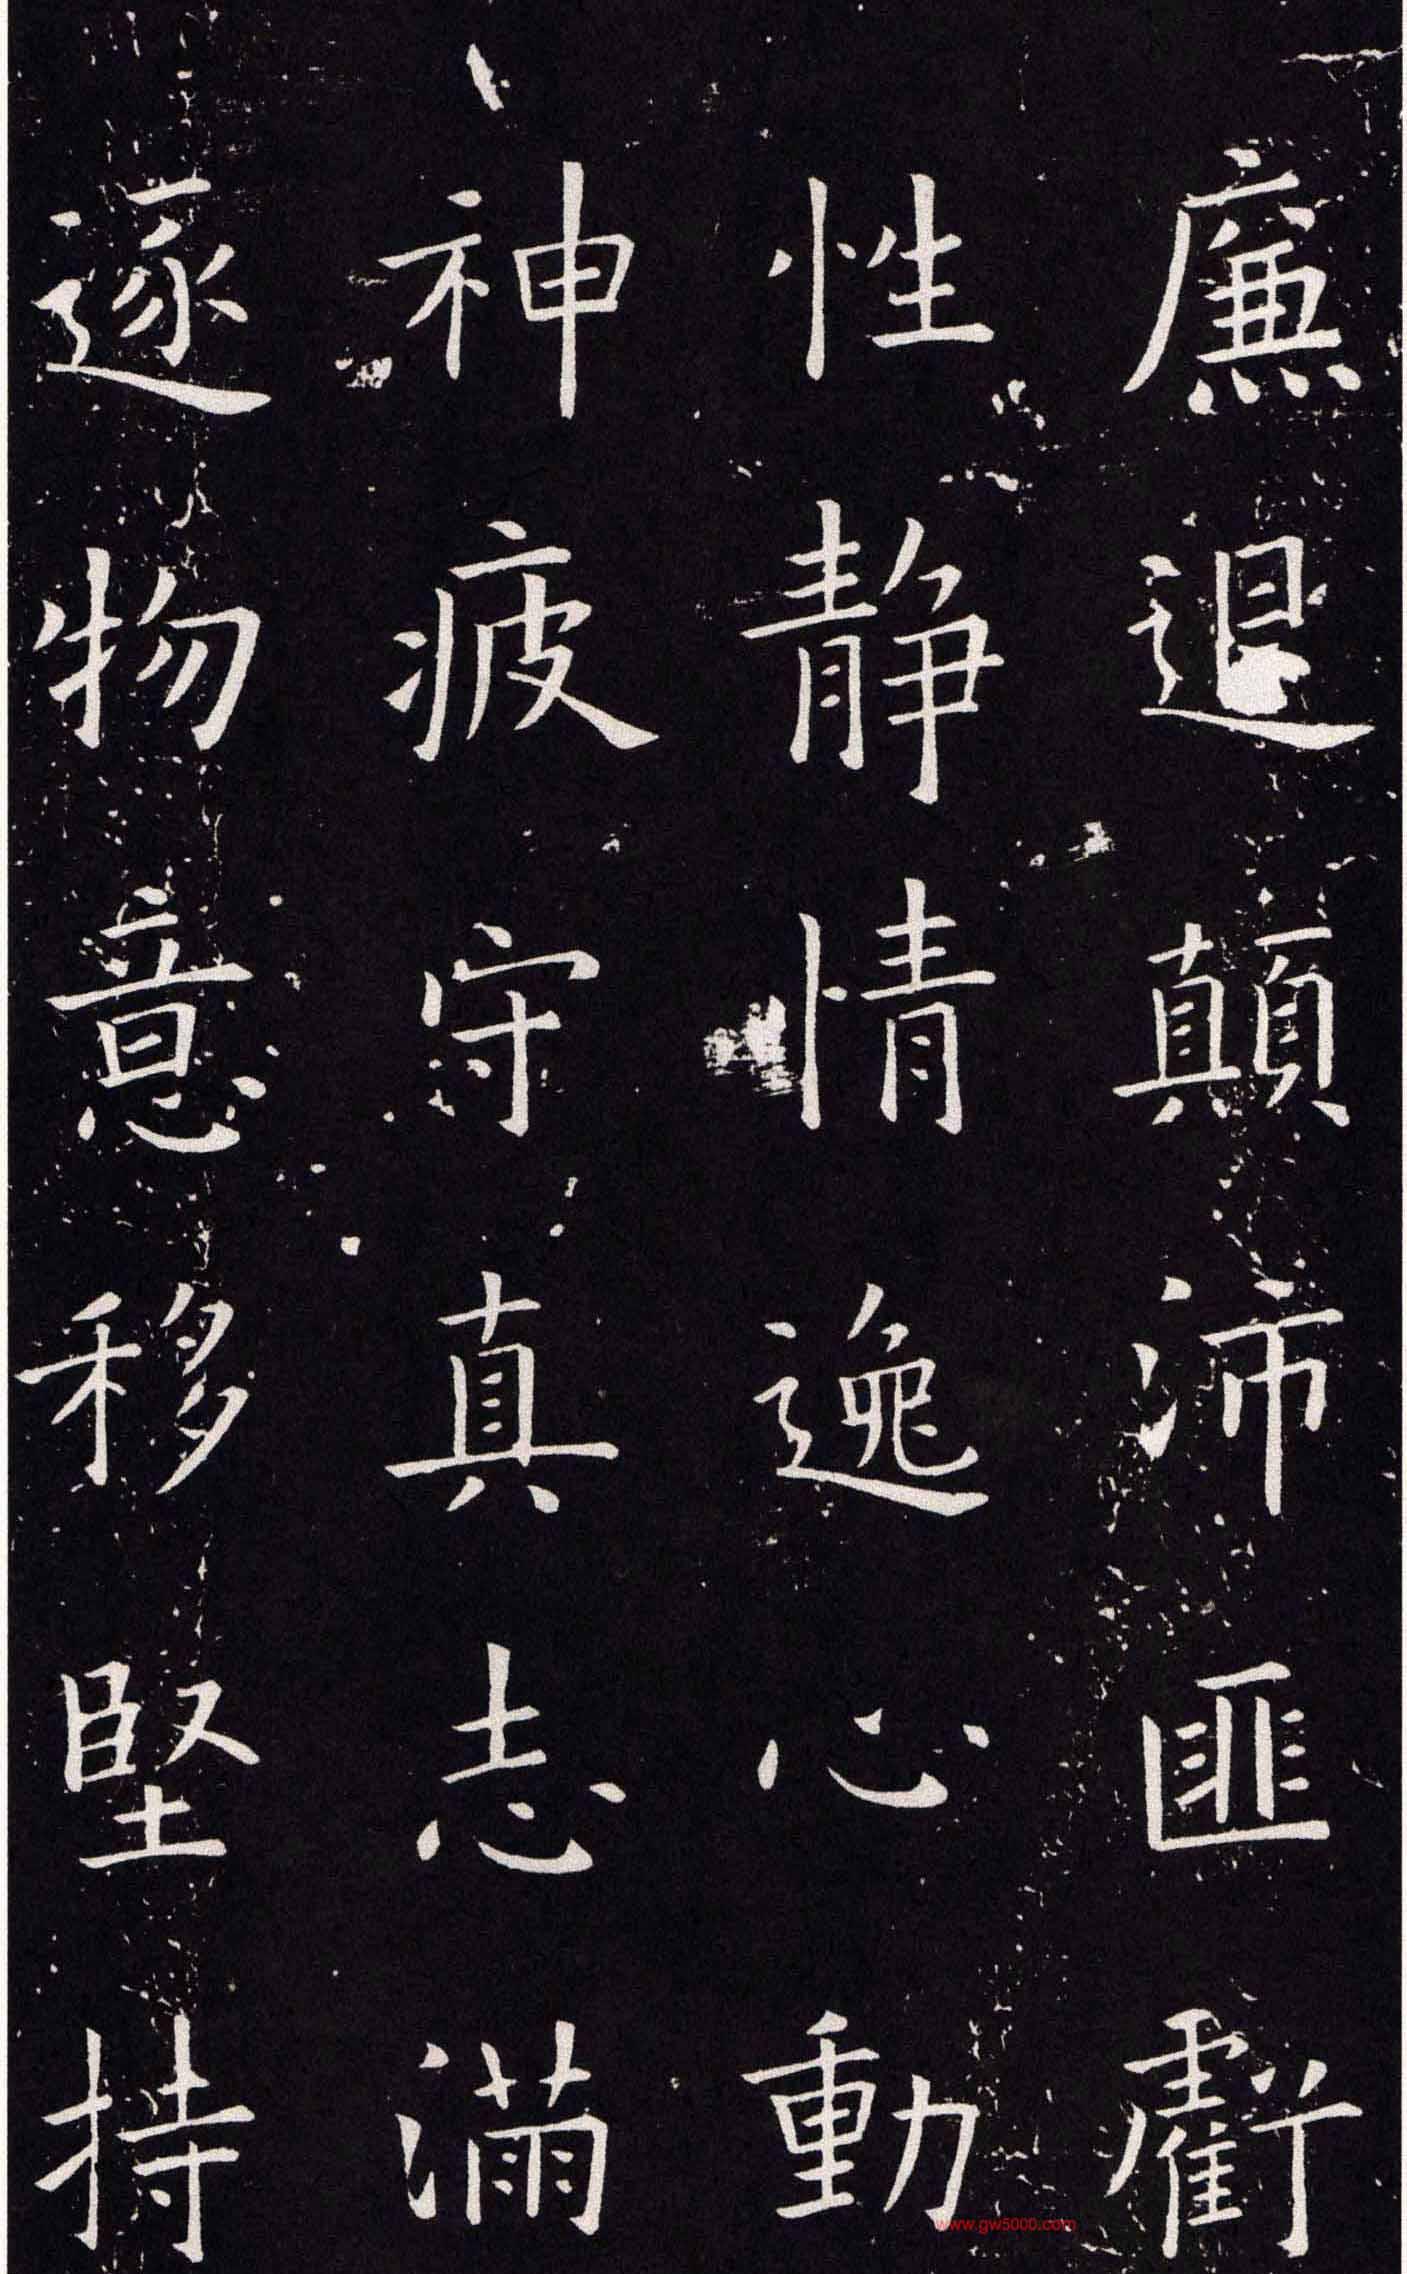 廉退顛沛匪虧
性静情逸心動
神疲守真志滿
逐物意移堅持
www.gw5000.com